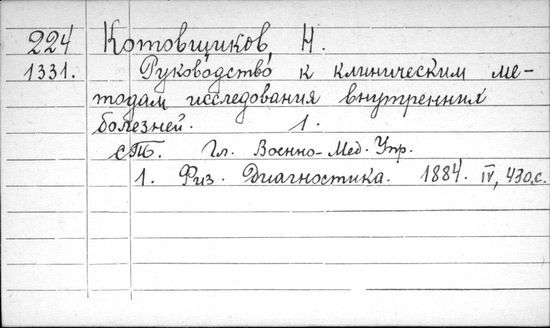 224 Котовщиков, Н.
1331. Руководство к клиническим ме-
тодам исследования внутренних
болезней. 1.
СПБ. Гл. Военно-Мед. Упр.
1. Физ. Диагностика. 1884. IV, 430 с.